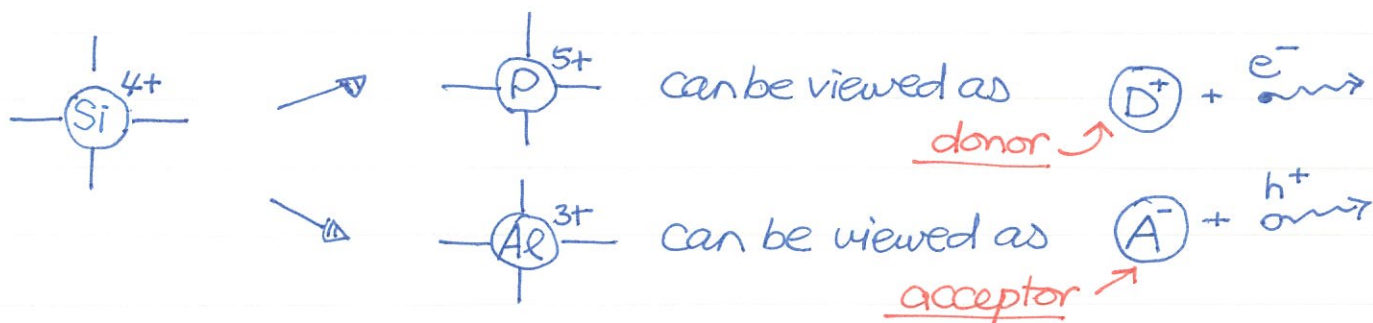 Si 4+
P 5+ can be viewed as D+ + e-
donor
Al 3+ can be viewed as A- + h+
acceptor